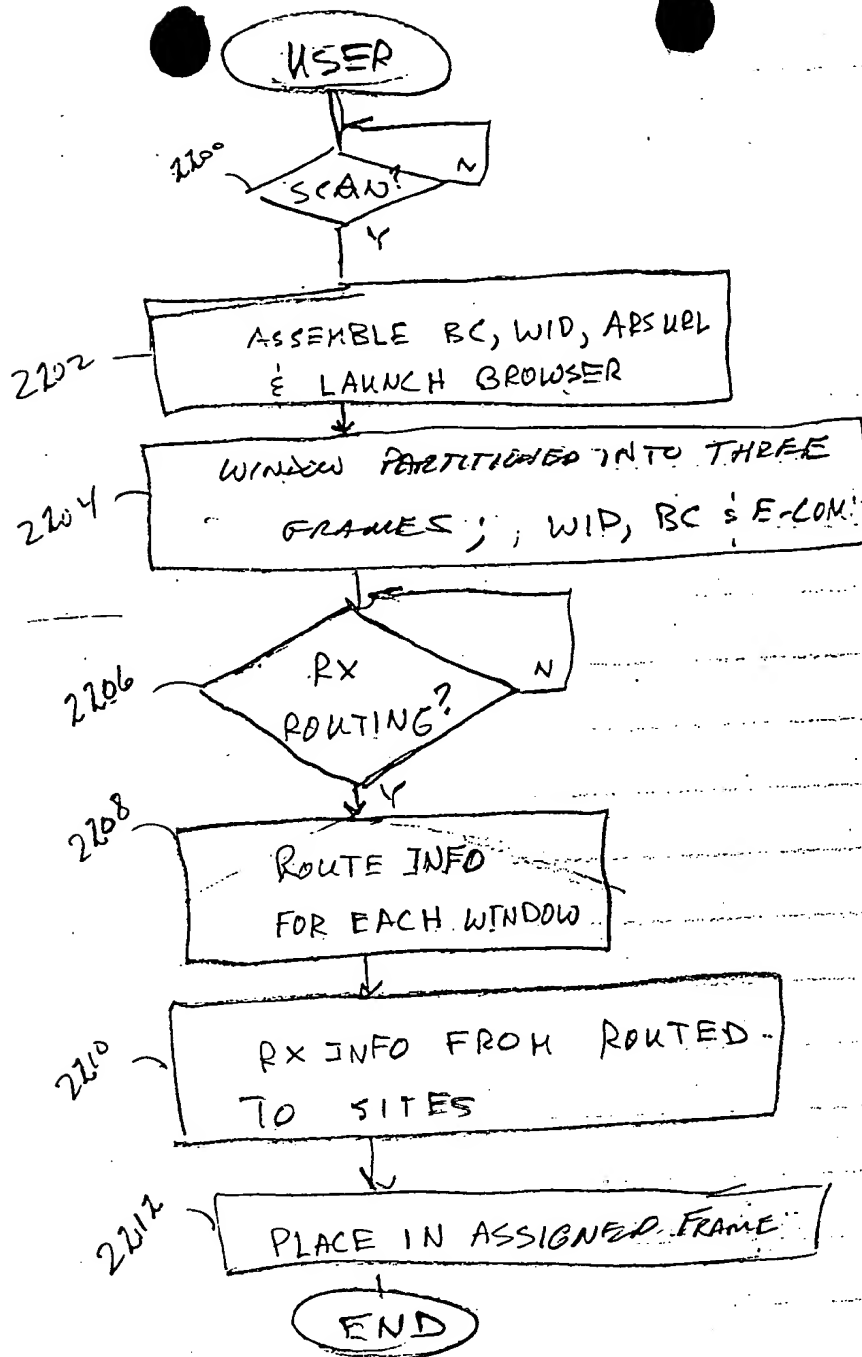 USER
2200
SCAN?
N
Y
2202
ASSEMBLE BC, WID, ARS URL
& LAUNCH BROWSER
2204
WINDOW PARTITIONED INTO THREE
FRAMES; , WID, BC & E-COM.
2206
RX
ROUTING?
N
Y
2208
ROUTE INFO
FOR EACH WINDOW
2210
RX INFO FROM ROUTED
TO SITES
2212
PLACE IN ASSIGNED FRAME
END